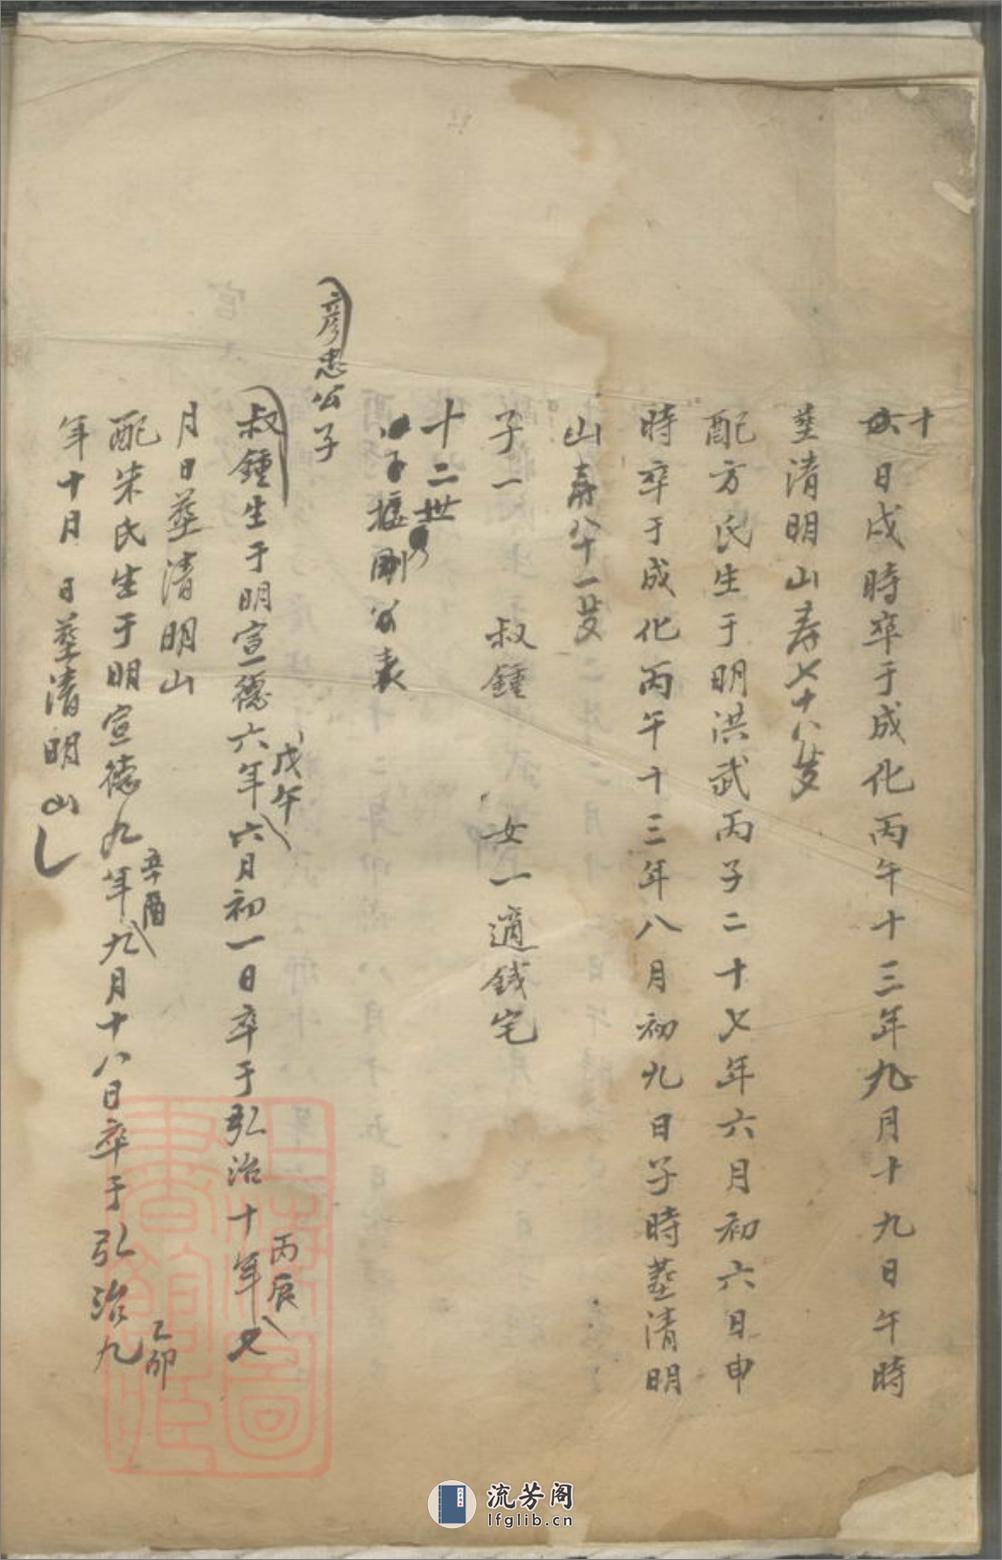 十日戌時卒于成化丙午十三年九月十九日午時
塟清明山寿七十八岁
配方氏生于明洪武丙子二十七年六月初六日申
時卒于成化丙午十三年八月初九日子時塟清明
山寿八十一岁
子一 叔鍾 女一適錢宅
十二世
彦忠公子
叔鍾生于明宣德六年戊午六月初一日卒于弘治十年丙辰七
月日塟清明山
配朱氏生于明宣德九年辛酉九月十八日卒于弘治九乙卯
年十月 日塟清明山
上海圖
書館藏
流芳阁
lfglib.cn